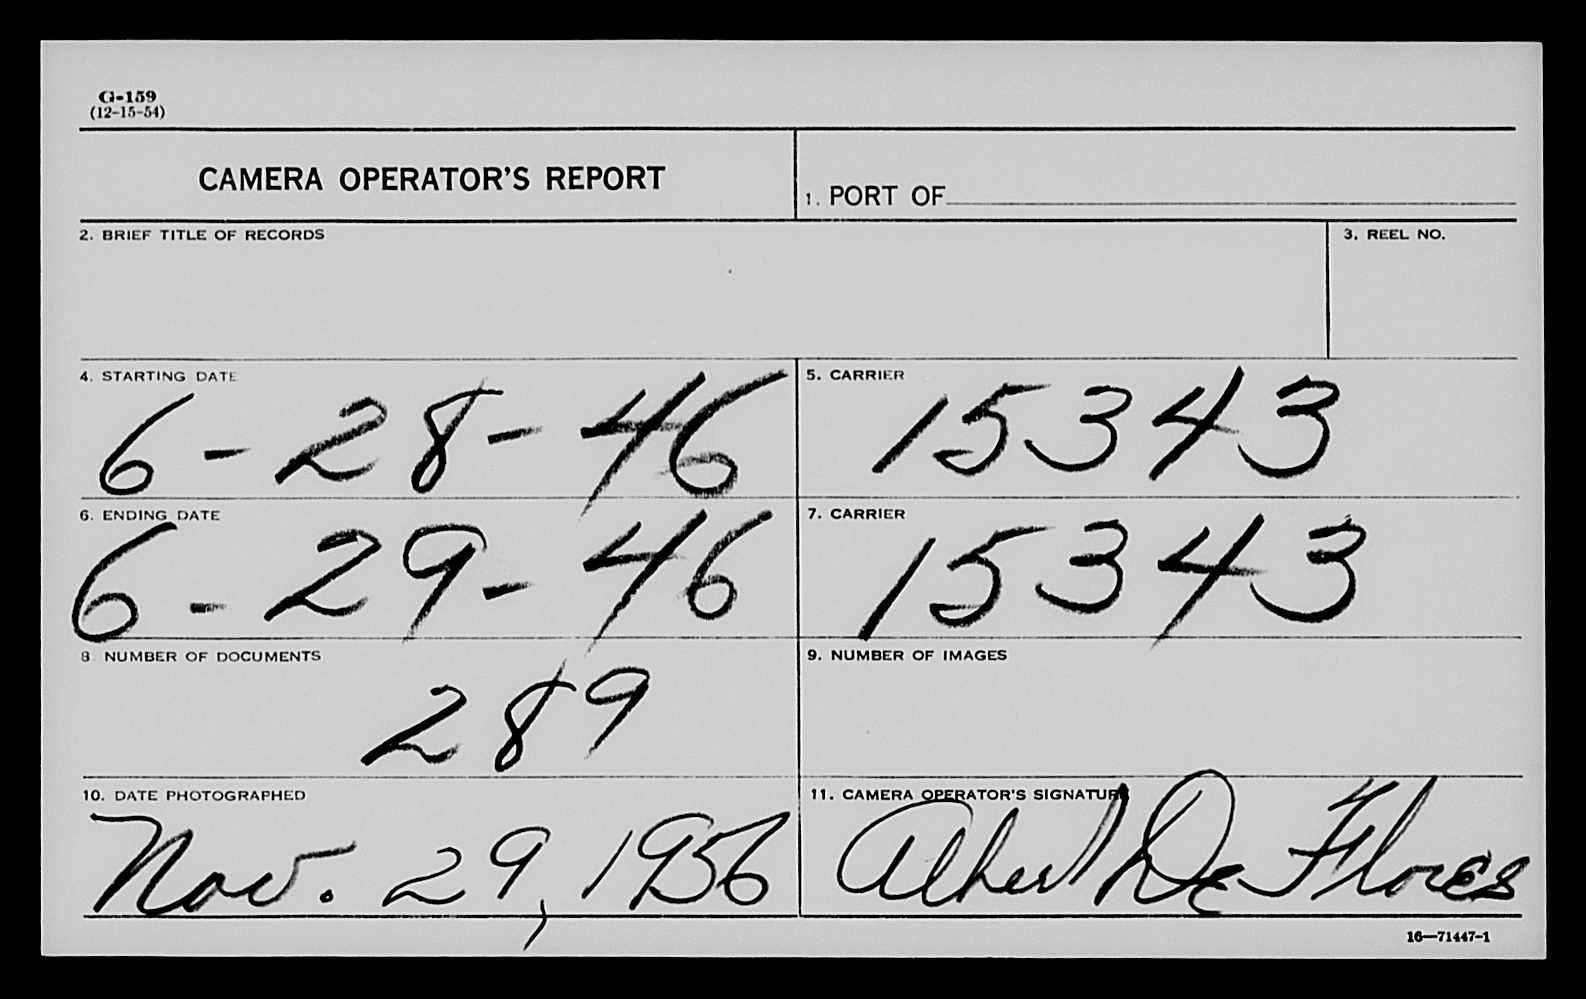 G-159
(12-15-54)
CAMERA OPERATOR'S REPORT
1. PORT OF
2. BRIEF TITLE OF RECORDS
3. REEL NO.
4. STARTING DATE
6-28-46
5. CARRIER
15343
6. ENDING DATE
6-29-46
7. CARRIER
15343
8 NUMBER OF DOCUMENTS
289
9. NUMBER OF IMAGES
10. DATE PHOTOGRAPHED
Nov. 29, 1956
11. CAMERA OPERATOR'S SIGNATURE
Albert De Flores
16—71447-1